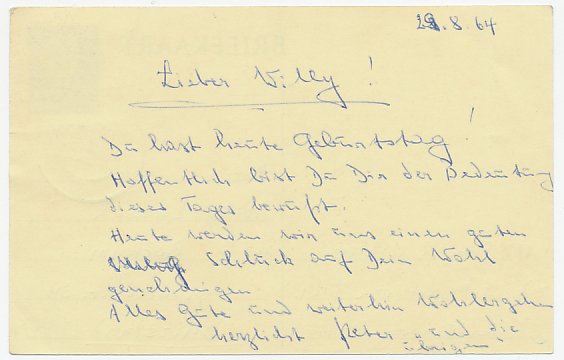 21.8.64
Lieber Willy!
Du hast heute Geburtstag!
Hoffentlich bist Du Dir der Bedeutung
dieses Tages bewußt.
Heute werden wir uns einen guten
Schluck auf Dein Wohl
genehmigen
Alles Gute und weiterhin Wohlergehen
herzlichst Peter „und die
übrigen"